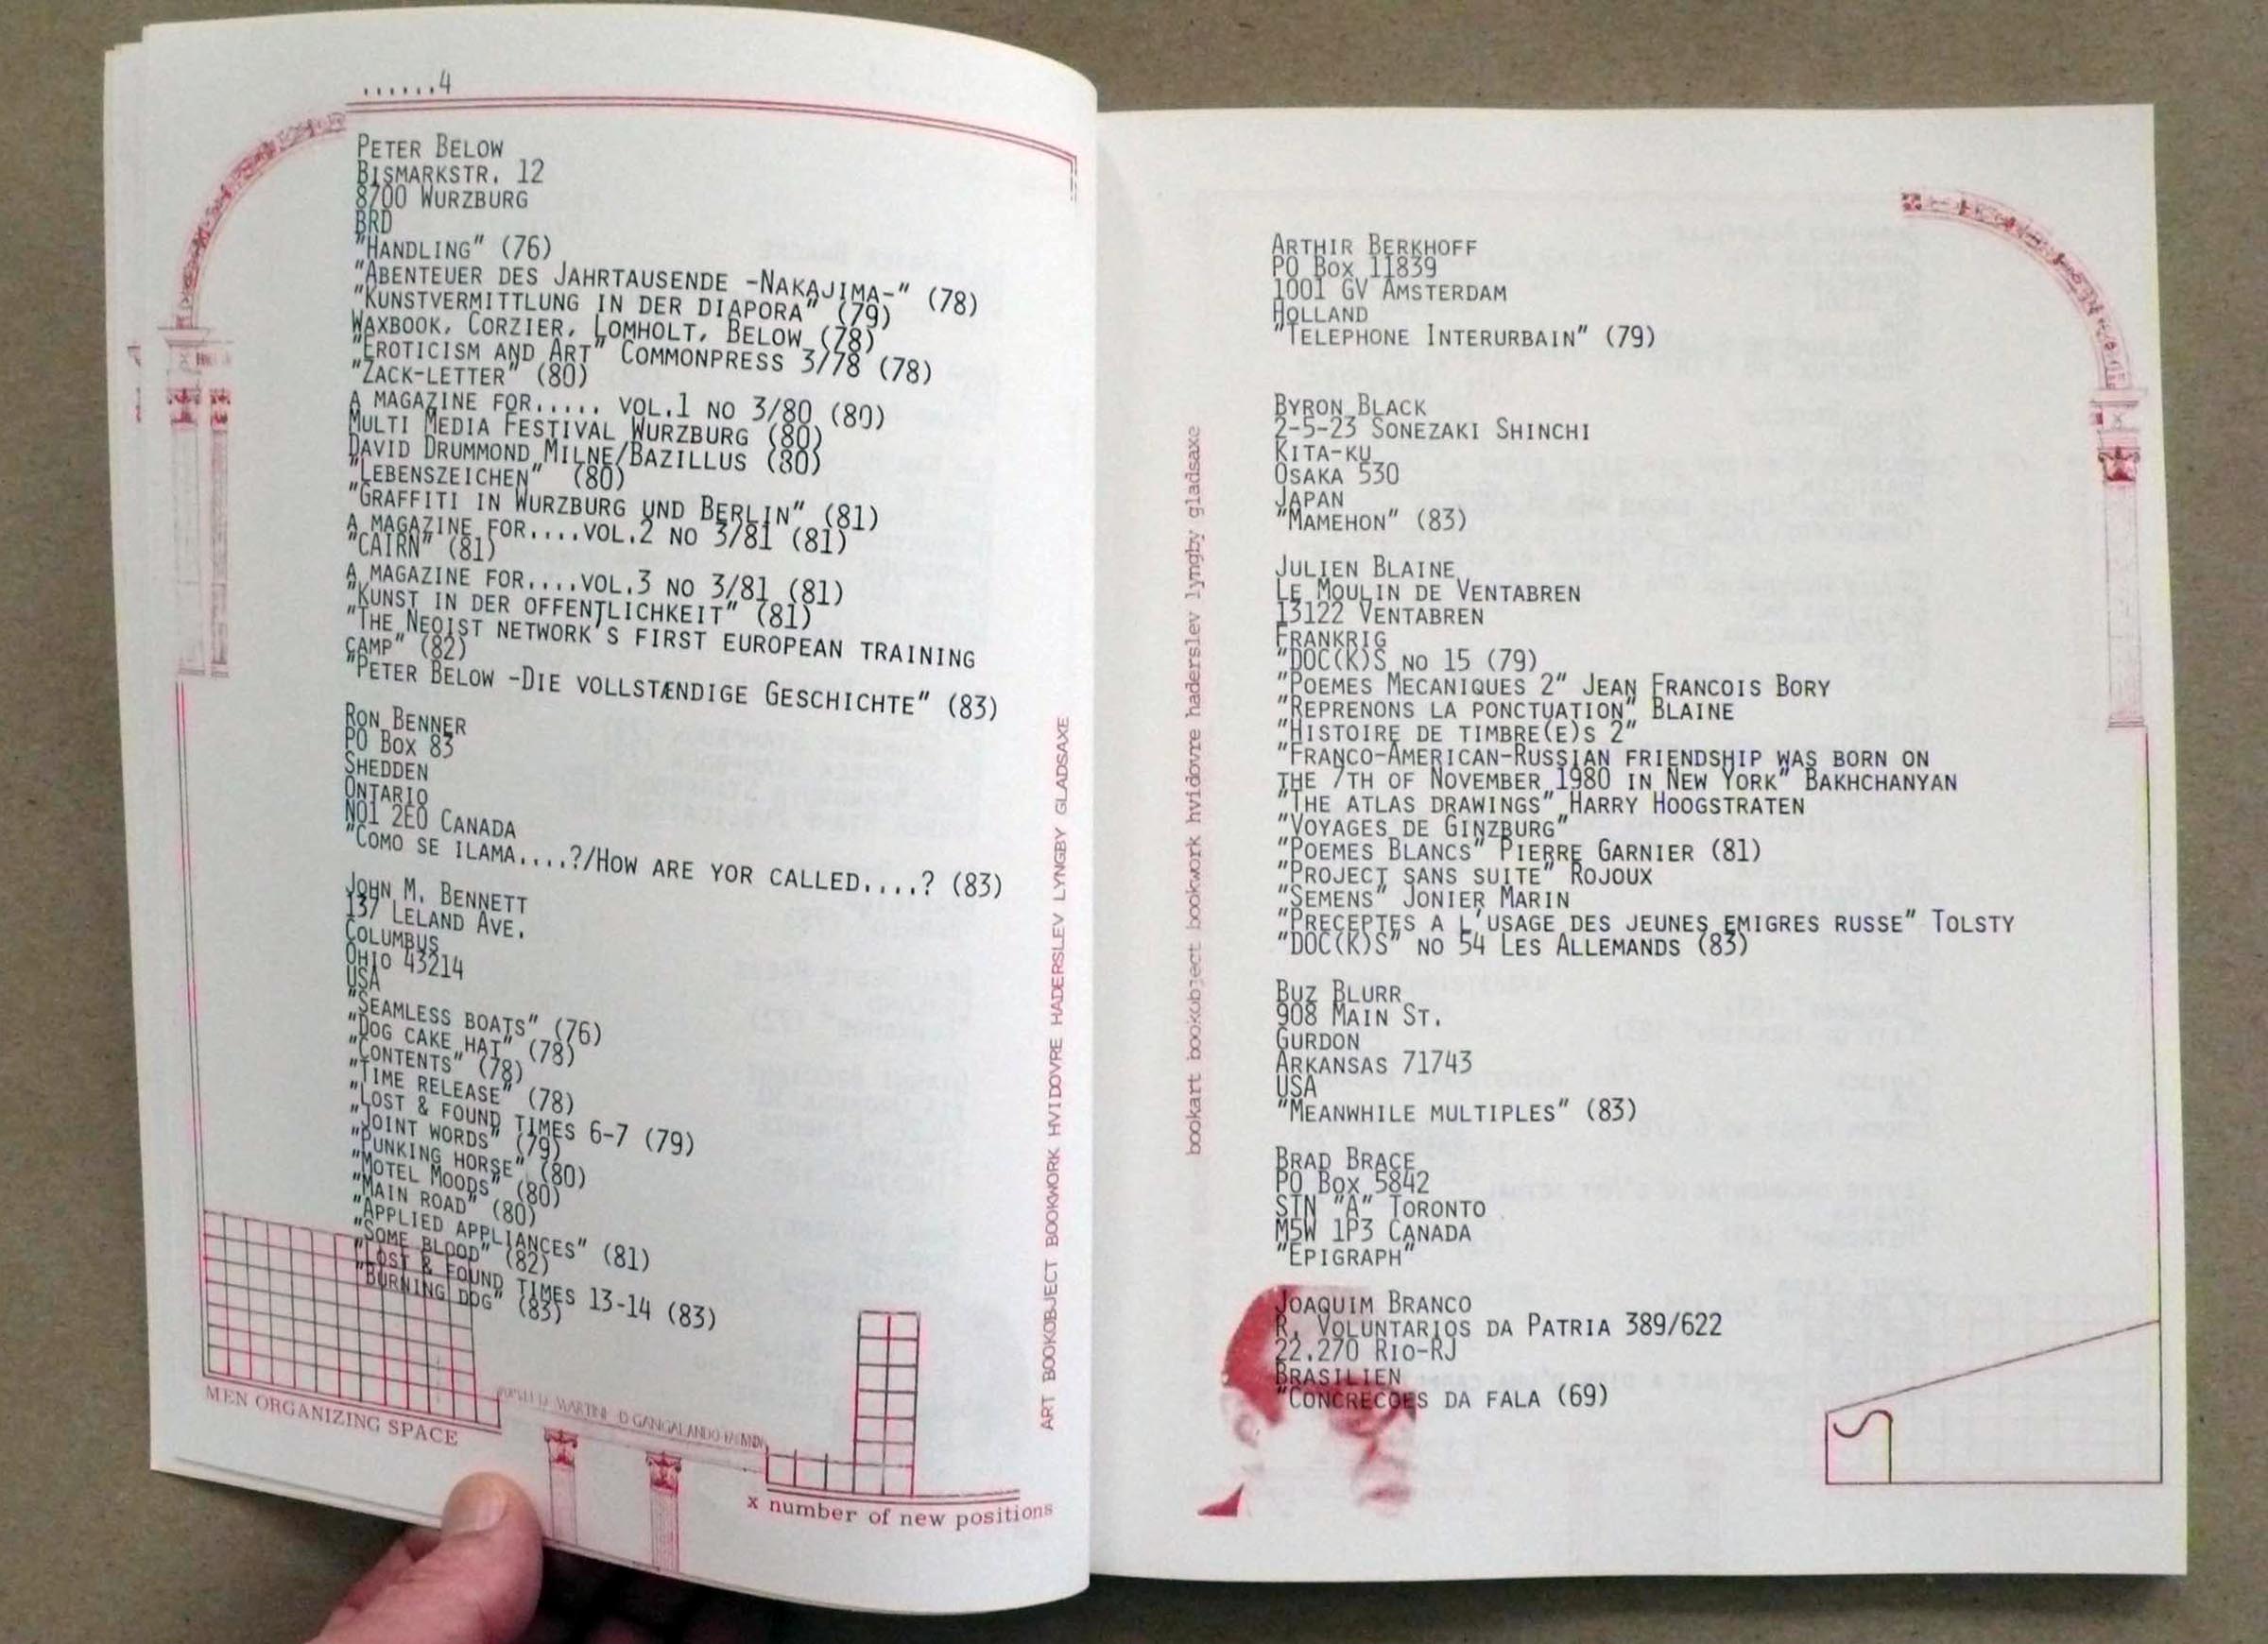 ......4
PETER BELOW
BISMARKSTR. 12
8700 WURZBURG
BRD
"HANDLING" (76)
"ABENTEUER DES JAHRTAUSENDE -NAKAJIMA-" (78)
"KUNSTVERMITTLUNG IN DER DIAPORA" (79)
WAXBOOK, CORZIER, LOMHOLT, BELOW (78)
"EROTICISM AND ART" COMMONPRESS 3/78 (78)
"ZACK-LETTER" (80)
A MAGAZINE FOR..... VOL.1 NO 3/80 (80)
MULTI MEDIA FESTIVAL WURZBURG (80)
DAVID DRUMMOND MILNE/BAZILLUS (80)
"LEBENSZEICHEN" (80)
"GRAFFITI IN WURZBURG UND BERLIN" (81)
A MAGAZINE FOR....VOL.2 NO 3/81 (81)
"CAIRN" (81)
A MAGAZINE FOR....VOL.3 NO 3/81 (81)
"KUNST IN DER OFFENTLICHKEIT" (81)
"THE NEOIST NETWORK'S FIRST EUROPEAN TRAINING
CAMP" (82)
"PETER BELOW -DIE VOLLSTÆNDIGE GESCHICHTE" (83)
RON BENNER
PO BOX 83
SHEDDEN
ONTARIO
NO1 2E0 CANADA
"COMO SE ILAMA....?/HOW ARE YOR CALLED....? (83)
JOHN M. BENNETT
137 LELAND AVE.
COLUMBUS
OHIO 43214
USA
"SEAMLESS BOATS" (76)
"DOG CAKE HAT" (78)
"CONTENTS" (78)
"TIME RELEASE" (78)
"LOST & FOUND TIMES 6-7 (79)
"JOINT WORDS" (79)
"PUNKING HORSE" (80)
"MOTEL MOODS" (80)
"MAIN ROAD" (80)
"APPLIED APPLIANCES" (81)
"SOME BLOOD" (82)
"LOST & FOUND TIMES 13-14 (83)
"BURNING DOG" (83)
MEN ORGANIZING SPACE
x number of new positions
ART BOOKOBJECT BOOKWORK HVIDOVRE HADERSLEV LYNGBY GLADSAXE
bookart bookobject bookwork hvidovre haderslev lyngby gladsaxe
ARTHIR BERKHOFF
PO BOX 11839
1001 GV AMSTERDAM
HOLLAND
"TELEPHONE INTERURBAIN" (79)
BYRON BLACK
2-5-23 SONEZAKI SHINCHI
KITA-KU
OSAKA 530
JAPAN
"MAMEHON" (83)
JULIEN BLAINE
LE MOULIN DE VENTABREN
13122 VENTABREN
FRANKRIG
"DOC(K)S NO 15 (79)
"POEMES MECANIQUES 2" JEAN FRANCOIS BORY
"REPRENONS LA PONCTUATION" BLAINE
"HISTOIRE DE TIMBRE(E)S 2"
"FRANCO-AMERICAN-RUSSIAN FRIENDSHIP WAS BORN ON
THE 7TH OF NOVEMBER 1980 IN NEW YORK" BAKHCHANYAN
"THE ATLAS DRAWINGS" HARRY HOOGSTRATEN
"VOYAGES DE GINZBURG"
"POEMES BLANCS" PIERRE GARNIER (81)
"PROJECT SANS SUITE" ROJOUX
"SEMENS" JONIER MARIN
"PRECEPTES A L'USAGE DES JEUNES EMIGRES RUSSE" TOLSTY
"DOC(K)S" NO 54 LES ALLEMANDS (83)
BUZ BLURR
908 MAIN ST.
GURDON
ARKANSAS 71743
USA
"MEANWHILE MULTIPLES" (83)
BRAD BRACE
PO BOX 5842
STN "A" TORONTO
M5W 1P3 CANADA
"EPIGRAPH"
JOAQUIM BRANCO
R. VOLUNTARIOS DA PATRIA 389/622
22.270 RIO-RJ
BRASILIEN
"CONCRECOES DA FALA (69)